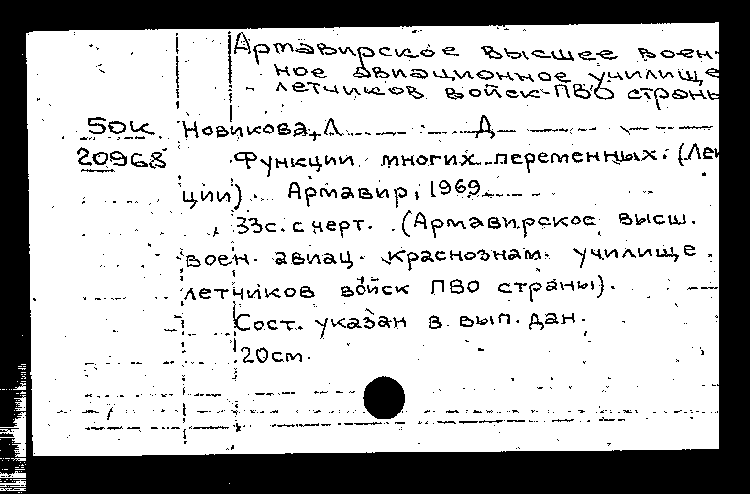 Армавирское высшее воен-
ное авиационное училище
летчиков войск ПВО страны
50к Новикова, Л Д
20968 Функции многих переменных. (Лек
ции). Армавир, 1969
33с. с черт. (Армавирское высш.
воен. авиац. краснознам. училище
летчиков войск ПВО страны).
Сост. указан в вып. дан.
20см.